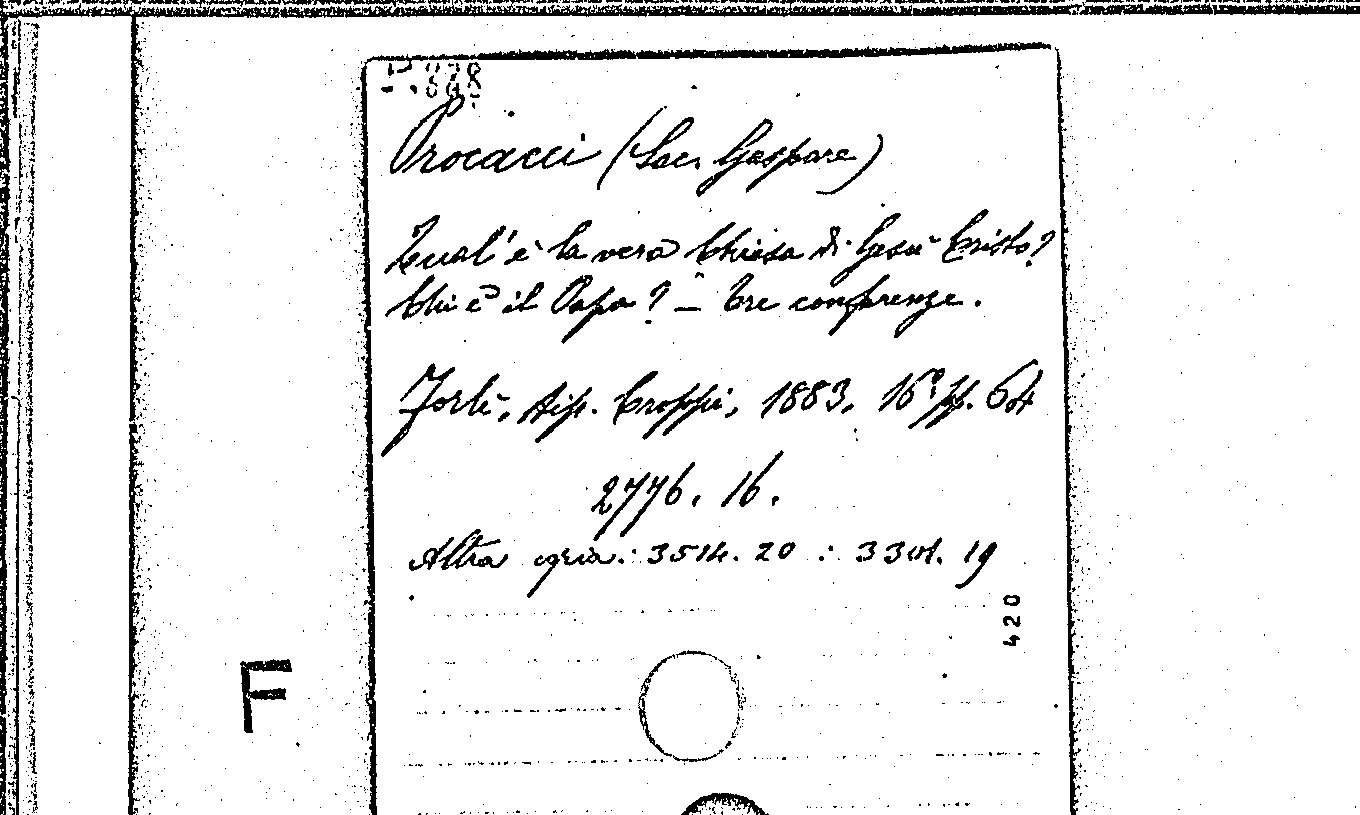 Procacci (Sac. Gaspare)
Qual'è la vera Chiesa di Gesù Cristo?
Chi è il Papa? — Tre conferenze.
Forlì, tip. Croppi, 1883. 16° pp. 64
2776. 16.
Altra copia: 3514. 20 : 3301. 19
420
F